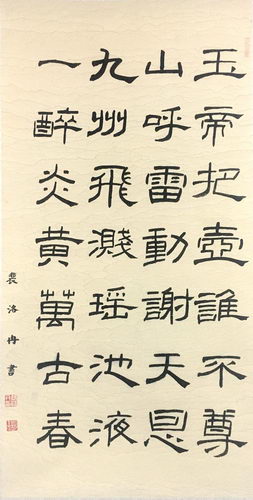 玉帝把壺誰不尊
山呼雷動謝天恩
九州飛濺瑶池液
一醉炎黃萬古春
裴洛冉書